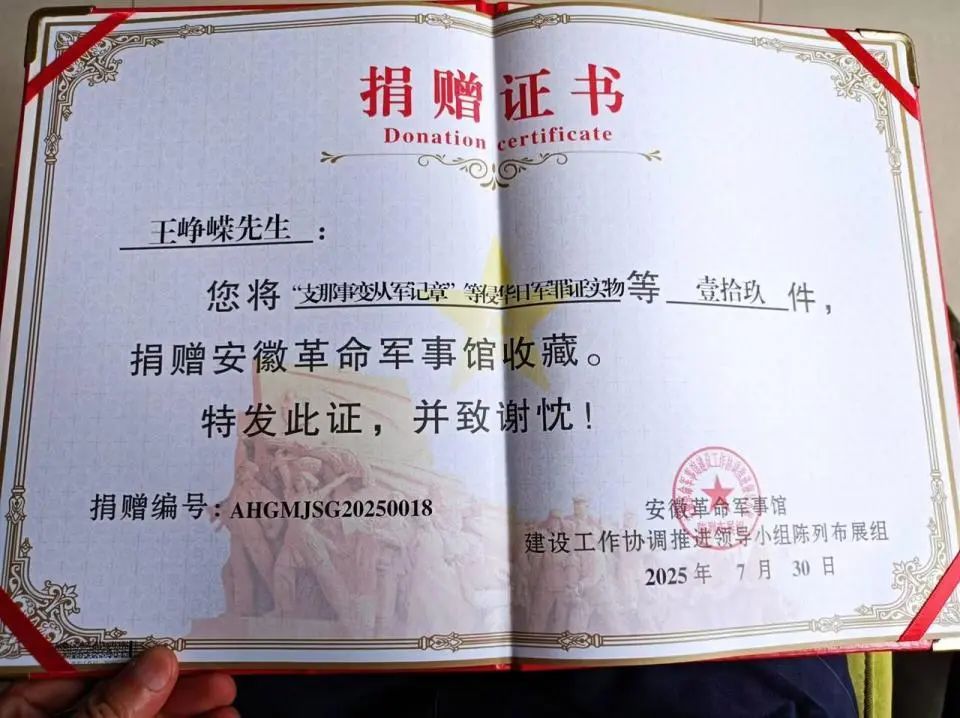 捐赠证书
Donation certificate
王峥嵘先生：
您将“支那事变从军记章”等侵华日军罪证实物等 壹拾玖 件，
捐赠安徽革命军事馆收藏。
特发此证，并致谢忱！
捐赠编号：AHGMJSG20250018
安徽革命军事馆
建设工作协调推进领导小组陈列布展组
2025年 7月 30日